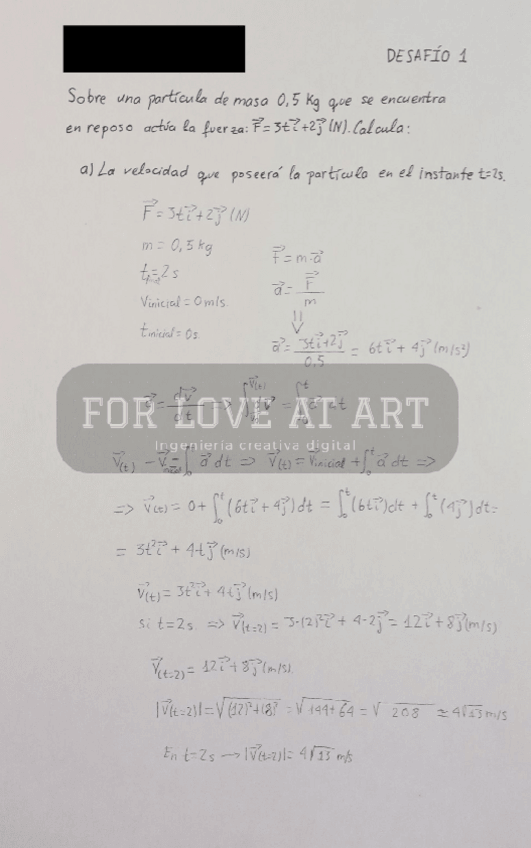 DESAFÍO 1
Sobre una partícula de masa 0,5 Kg que se encuentra
en reposo actúa la fuerza: F⃗=3ti⃗+2j⃗ (N). Calcula:
a) La velocidad que poseerá la partícula en el instante t=2s.
F⃗ = 3ti⃗+2j⃗ (N)
m = 0,5 kg
t=2s
Vinicial = 0 m/s.
tinicial = 0s.
F⃗ = m·a⃗
a⃗ = F⃗/m
⇓
a⃗ = (3ti⃗+2j⃗)/0.5 = 6ti⃗ + 4j⃗ (m/s²)
FOR LOVE AT ART
Ingeniería creativa digital
a⃗ dt ⇒ V⃗(t) = V⃗inicial + ∫₀ᵗ a⃗ dt ⇒
⇒ V⃗(t) = 0 + ∫₀ᵗ (6ti⃗ + 4j⃗)dt = ∫₀ᵗ (6ti⃗)dt + ∫₀ᵗ (4j⃗)dt =
= 3t²i⃗ + 4tj⃗ (m/s)
V⃗(t) = 3t²i⃗ + 4tj⃗ (m/s)
si t=2s ⇒ V⃗(t=2) = 3·(2)²i⃗ + 4·2j⃗ = 12i⃗ + 8j⃗ (m/s)
V⃗(t=2) = 12i⃗ + 8j⃗ (m/s).
|V⃗(t=2)| = √((12)²+(8)²) = √(144+64) = √208 ≃ 4√13 m/s
En t=2s → |V⃗(t=2)| = 4√13 m/s